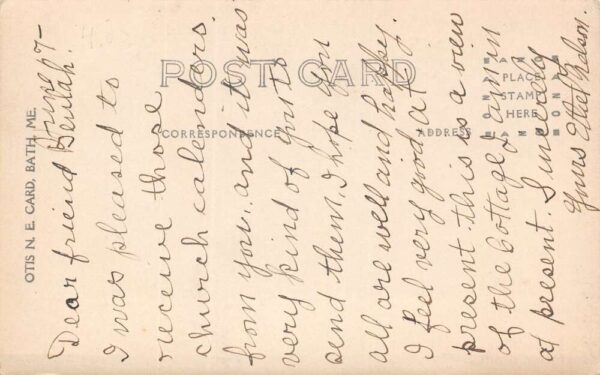 POST CARD
CORRESPONDENCE
ADDRESS
PLACE
STAMP
HERE
OTIS N. E. CARD, BATH, ME.
June 17-
Dear friend Beulah.
I was pleased to
receive those
church calenders.
from you, and it was
very kind of you to
send them, I hope you
all are well and happy.
I feel very good at
present this is a view
of the Cottage I am in
at present. Sincerely
Yours Ethel Nelson.